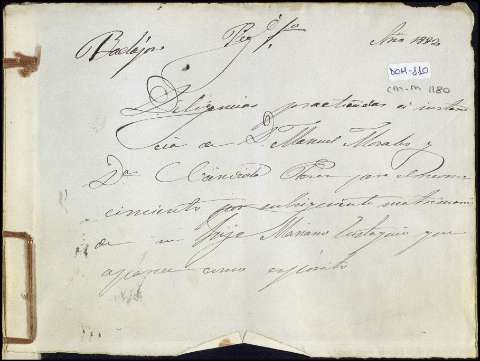 Badajoz Año 1882
DOM-110
CM-M 1180
Diligencias practicadas á instan
cia de D. Manuel Morales y
Dª Cándida para el recono
cimiento por subsiguiente matrimonio
de su hijo Mariano Eustaquio que
aparece como expósito